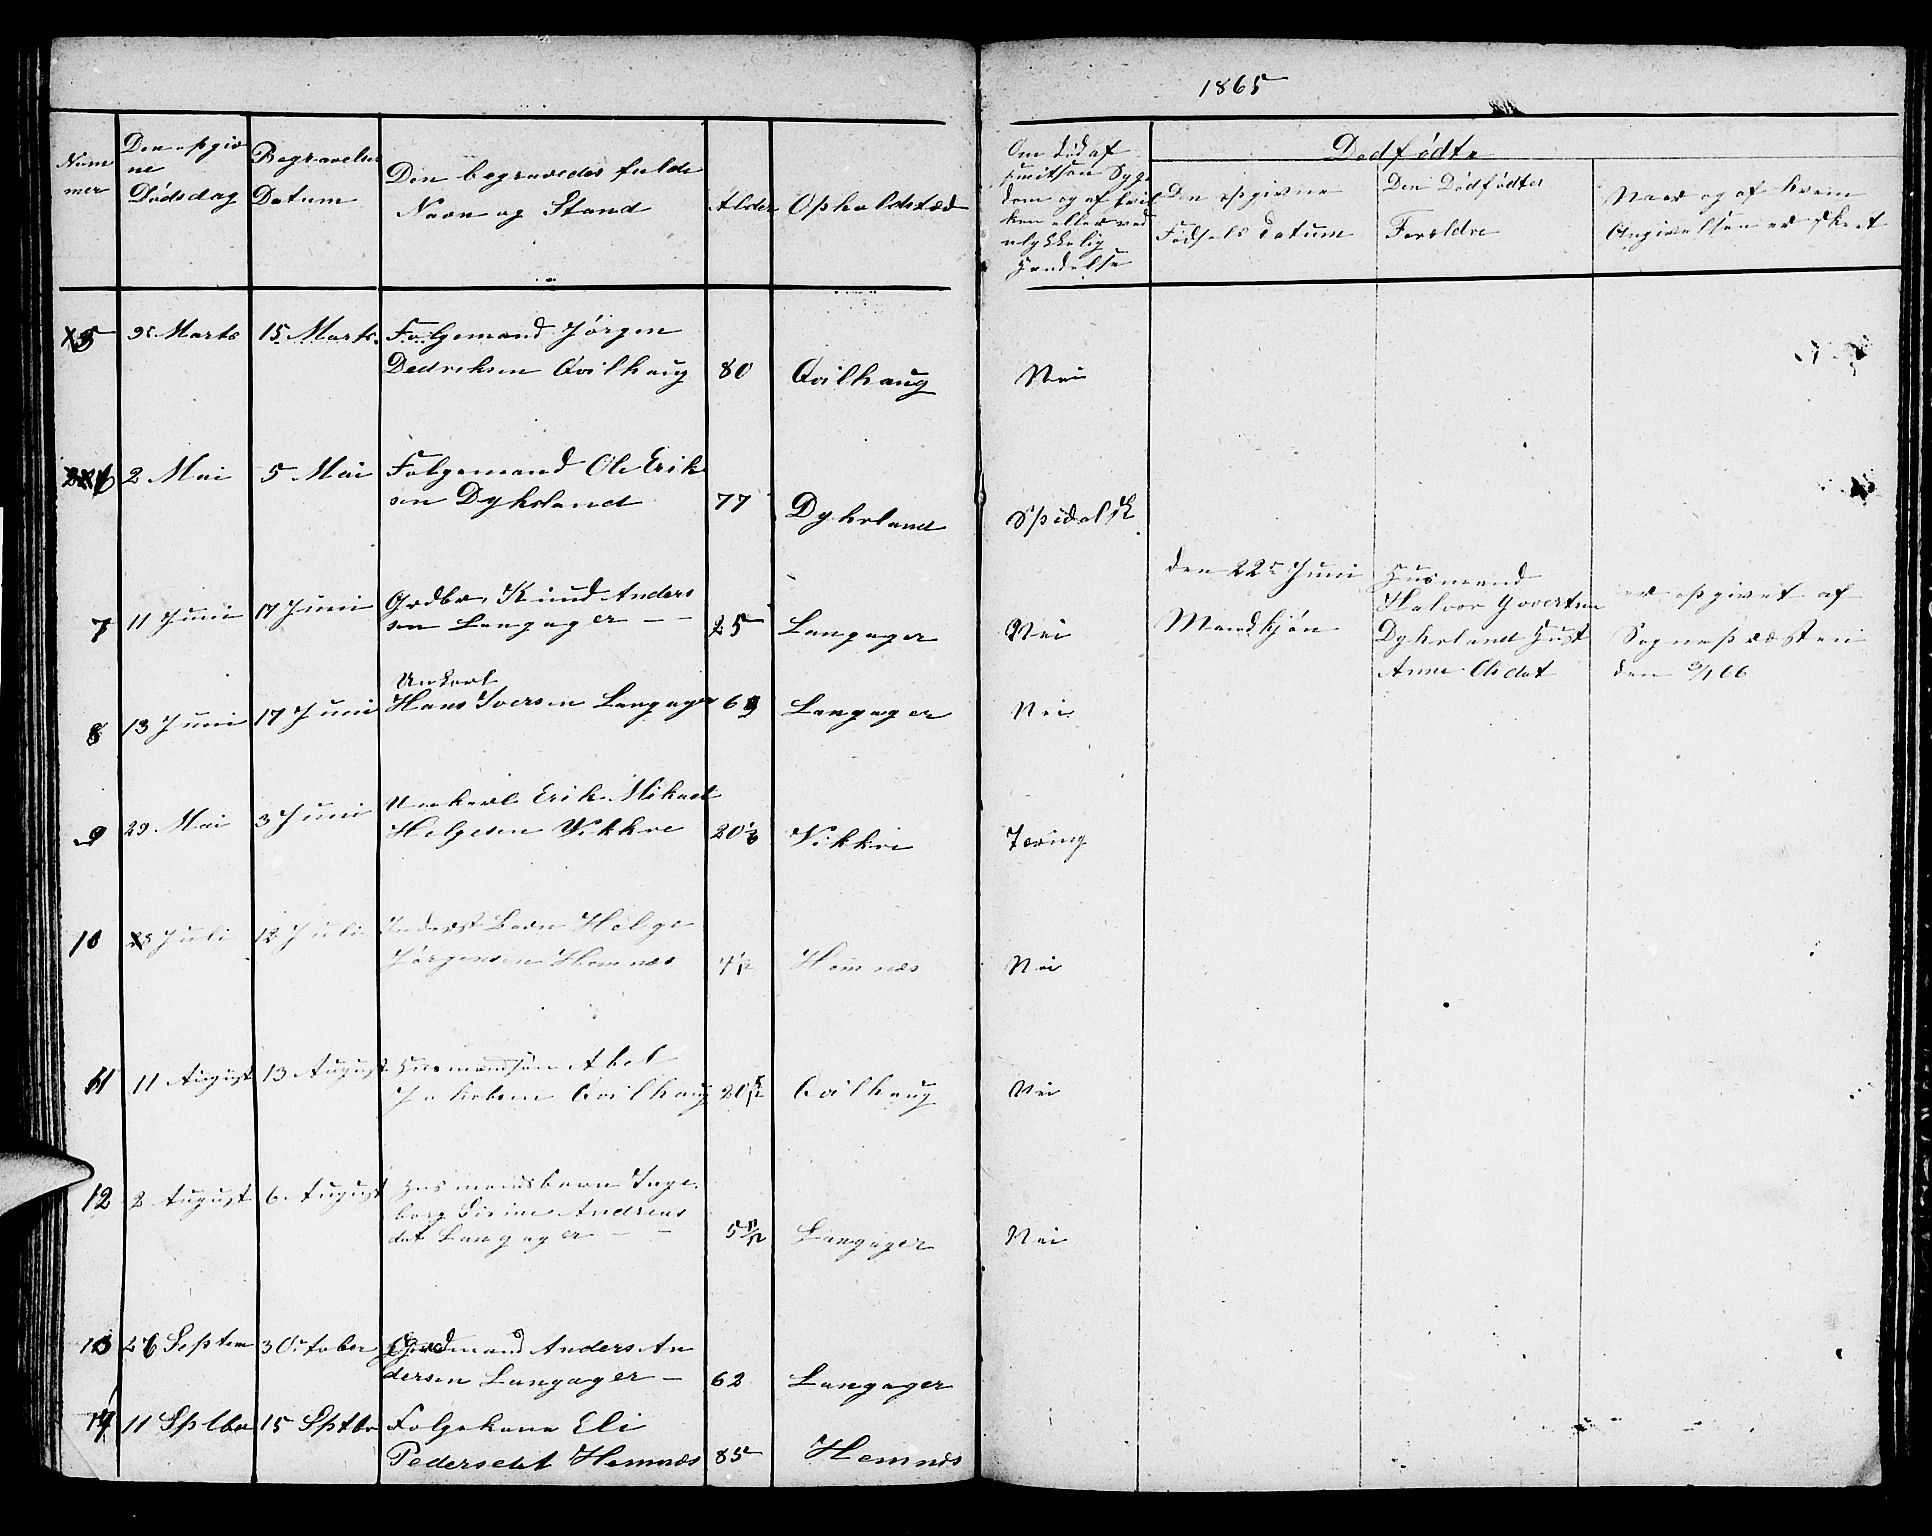 1865
Num
mer
Den opgiv
ne
Dødsdag
Begravelse
Datum
Den begravedes fulde
Navn og Stand
Alder
Opholdsted
Om Død af
smitsom Syg
dom og af hvil
ken eller ved
ulykkelig
Hændelse
Dødfødte
Den opgivne
Fødsels datum
Den Dødfødtes
Forældre
Naar og af hvem
Angivelsen er skeet
5 9de Marts 15 Marts Folgemand Jörgen
Dedriksen Qvilhaug 80 Qvilhaug Nei
6 2 Mai 5 Mai Folgemand Ole Erik
sen Dyhrland 77 Dyhrland Spedalsk
7 11 Juni 17 Juni Grdbr. Knud Anders
sen Langager 25 Langager Nei
den 22de Juni
Mandkjön
Husmand
Halvor Govertsen
Dyhrland Hust
Anne Olsdat
er opgivet af
Sognepræsten
den 3/1 66
Unkarl
8 13 Juni 17 Juni Hans Iversen Langager 69 Langager Nei
9 29 Mai 3 Juni Unkarl Erik Mikael
Helgesen Vikkre 20 Vikkre Tæring
10 Juli 12 Juli Inderst Barn Helge
Jörgensen Hemnæs 4 Hemnæs Nei
11 11 August 13 August Husmandsön Abel
Jakobsen Qvilhaug 20 Qvilhaug Nei
12 2 August 6 August Husmandsbarn Inge
borg Sirine Andreas
dat Langager 5 11/12 Langager Nei
13 26 Septem 3 October Grdmand Anders An
dersen Langager 62 Langager
14 11 Sptbr 15 Sptbr Folgekone Eli
Pedersdat Hemnæs 85 Hemnæs